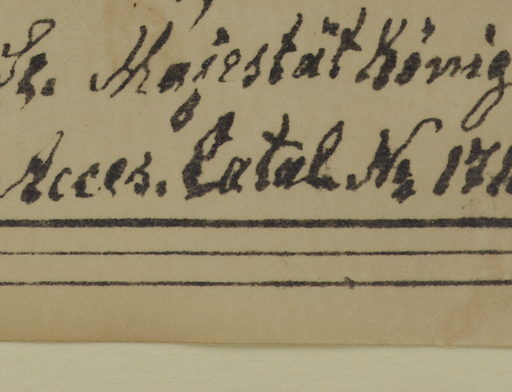 Sr. Majestät König
Acces. Catal. Nr 171